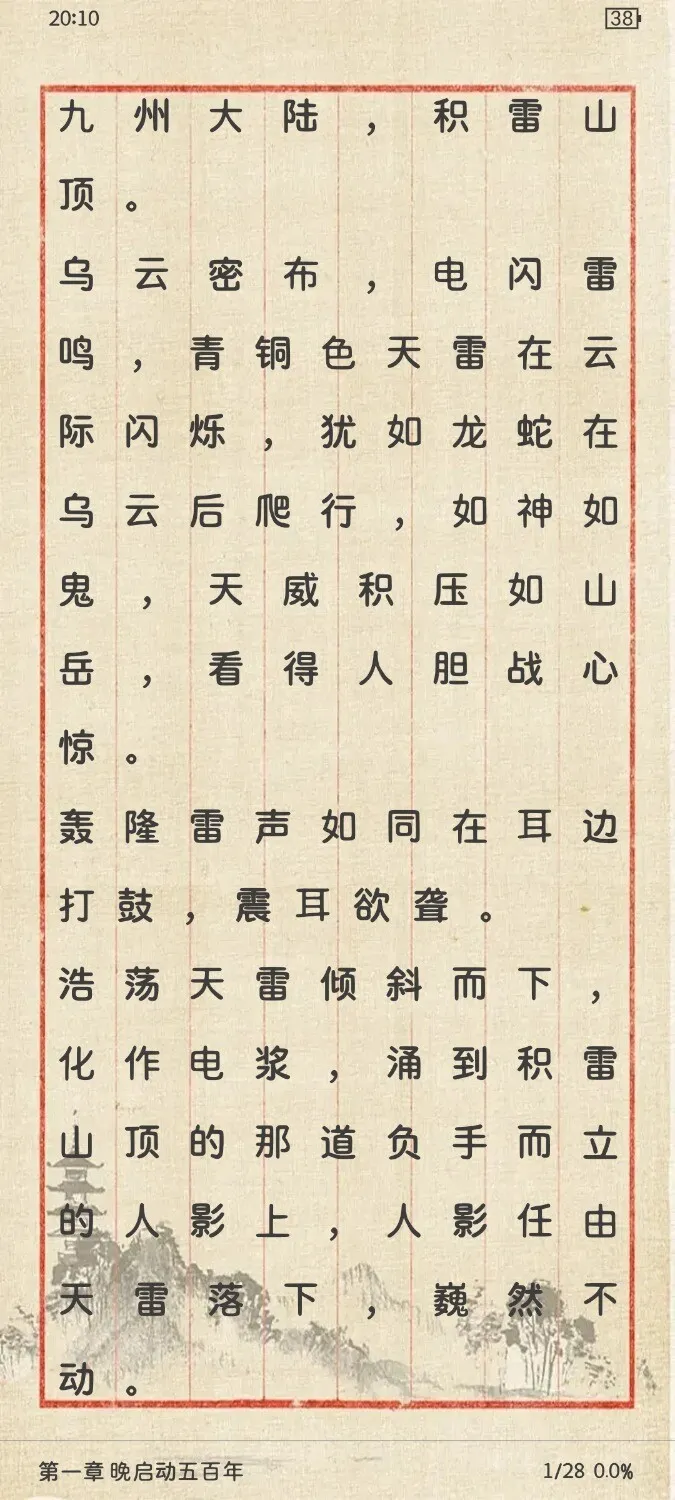 20:10 38
九州大陆，积雷山
顶。
乌云密布，电闪雷
鸣，青铜色天雷在云
际闪烁，犹如龙蛇在
乌云后爬行，如神如
鬼，天威积压如山
岳，看得人胆战心
惊。
轰隆雷声如同在耳边
打鼓，震耳欲聋。
浩荡天雷倾斜而下，
化作电浆，涌到积雷
山顶的那道负手而立
的人影上，人影任由
天雷落下，巍然不
动。
第一章 晚启动五百年 1/28 0.0%